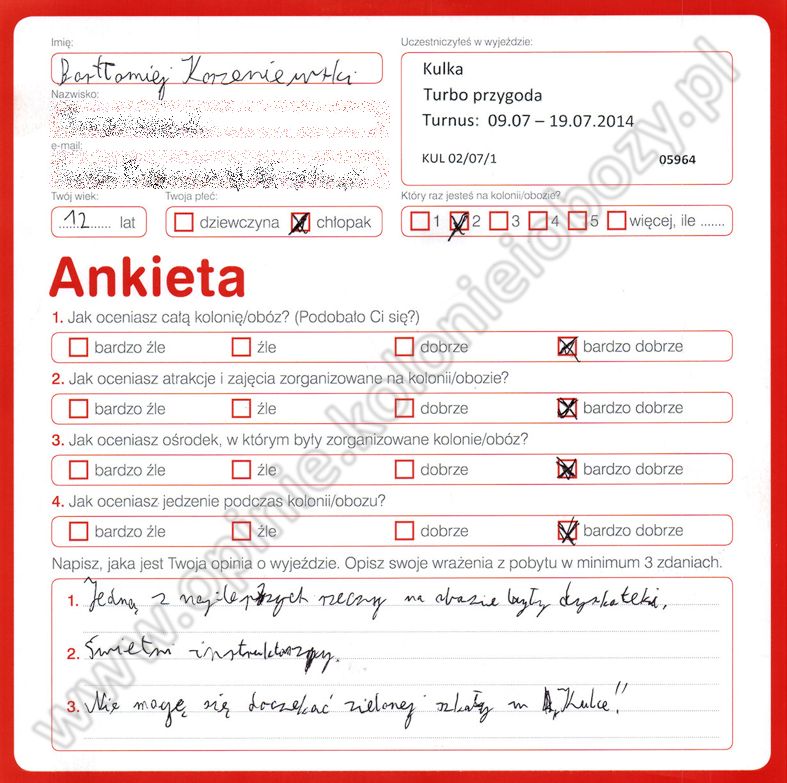 Imię:
Bartłomiej Korzeniewski
Uczestniczyłeś w wyjeździe:
Kulka
Turbo przygoda
Turnus: 09.07 – 19.07.2014
KUL 02/07/1 05964
Nazwisko:
e-mail:
Twój wiek:
12 lat
Twoja płeć:
dziewczyna chłopak
Który raz jesteś na kolonii/obozie?
1 2 3 4 5 więcej, ile .......
Ankieta
1. Jak oceniasz całą kolonię/obóz? (Podobało Ci się?)
bardzo źle źle dobrze bardzo dobrze
2. Jak oceniasz atrakcje i zajęcia zorganizowane na kolonii/obozie?
bardzo źle źle dobrze bardzo dobrze
3. Jak oceniasz ośrodek, w którym były zorganizowane kolonie/obóz?
bardzo źle źle dobrze bardzo dobrze
4. Jak oceniasz jedzenie podczas kolonii/obozu?
bardzo źle źle dobrze bardzo dobrze
Napisz, jaka jest Twoja opinia o wyjeździe. Opisz swoje wrażenia z pobytu w minimum 3 zdaniach.
1. Jedną z najlepszych rzeczy na obozie były dyskoteki.
2. Świetni instruktorzy.
3. Nie mogę się doczekać zielonej szkoły w „Kulce”!
www.opinie.kolonieiobozy.pl